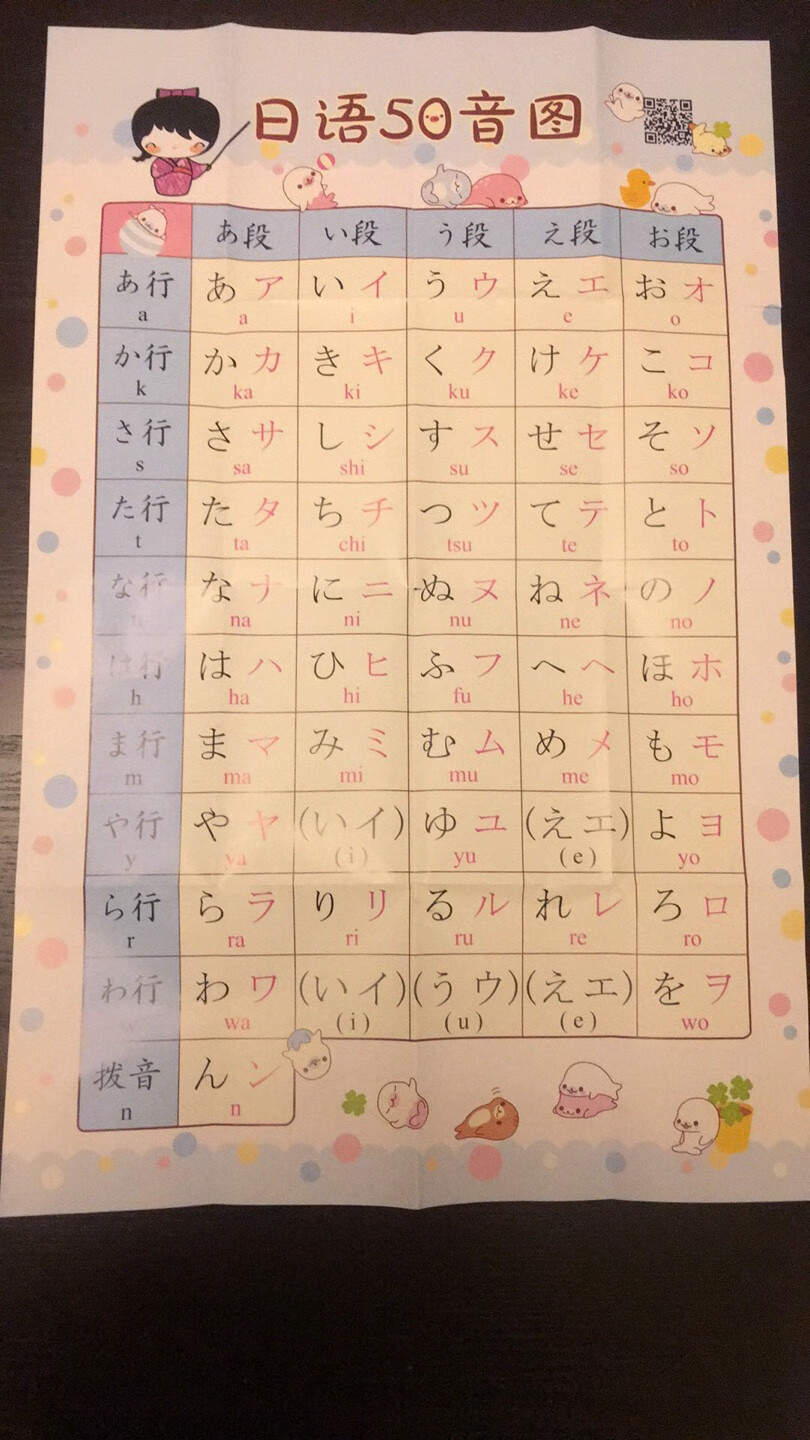 日语50音图
あ段 い段 う段 え段 お段
あ行 あ ア い イ う ウ え エ お オ
a a i u e o
か行 か カ き キ く ク け ケ こ コ
k ka ki ku ke ko
さ行 さ サ し シ す ス せ セ そ ソ
s sa shi su se so
た行 た タ ち チ つ ツ て テ と ト
t ta chi tsu te to
な行 な ナ に ニ ぬ ヌ ね ネ の ノ
na ni nu ne no
は行 は ハ ひ ヒ ふ フ へ ヘ ほ ホ
h ha hi fu he ho
ま行 ま マ み ミ む ム め メ も モ
m ma mi mu me mo
や行 や ヤ (い イ) ゆ ユ (え エ) よ ヨ
y ya (i) yu (e) yo
ら行 ら ラ り リ る ル れ レ ろ ロ
r ra ri ru re ro
わ行 わ ワ (い イ) (う ウ) (え エ) を ヲ
wa (i) (u) (e) wo
拨音 ん ン
n n